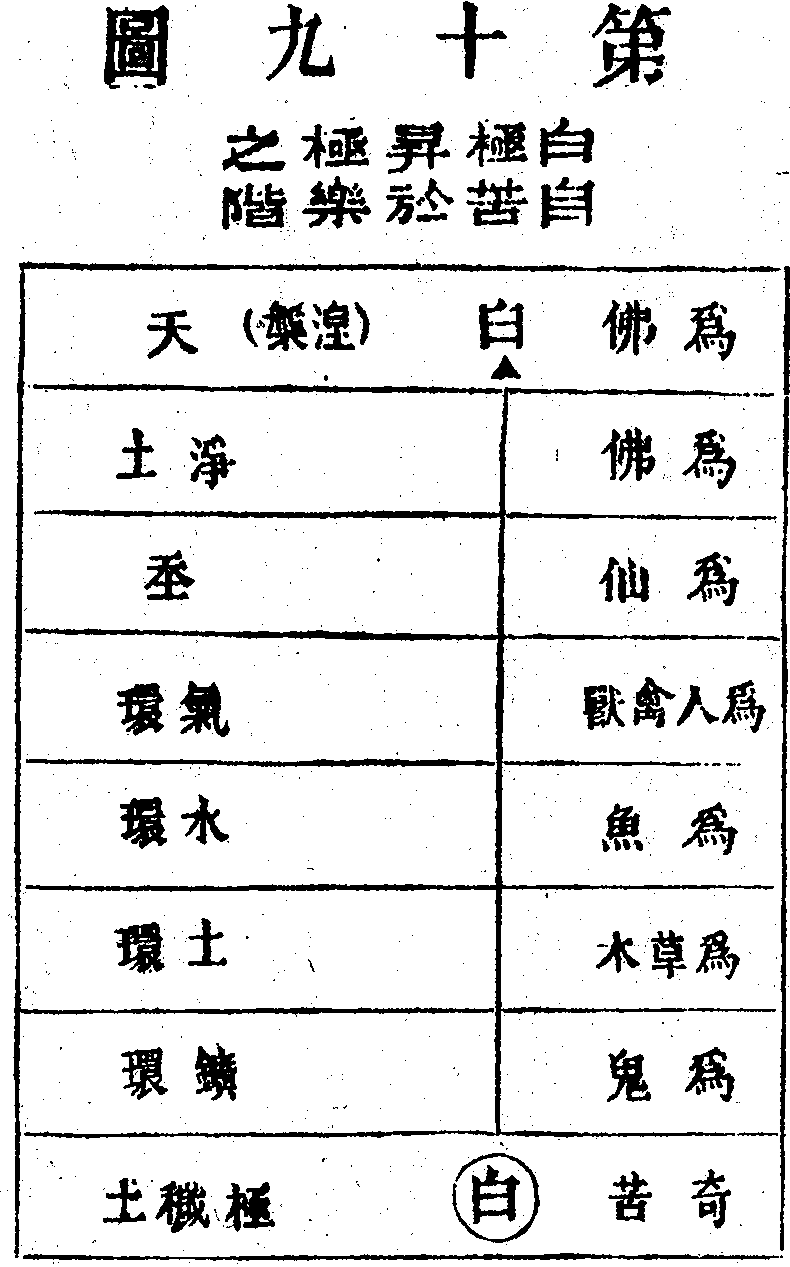 第十九圖
白自極苦昇於極樂之階
爲佛 白 (湼槃)天
爲佛 淨土
爲仙
爲人禽獸 氣環
爲魚 水環
爲草木 土環
爲鬼 鑛環
奇苦 白 極穢土